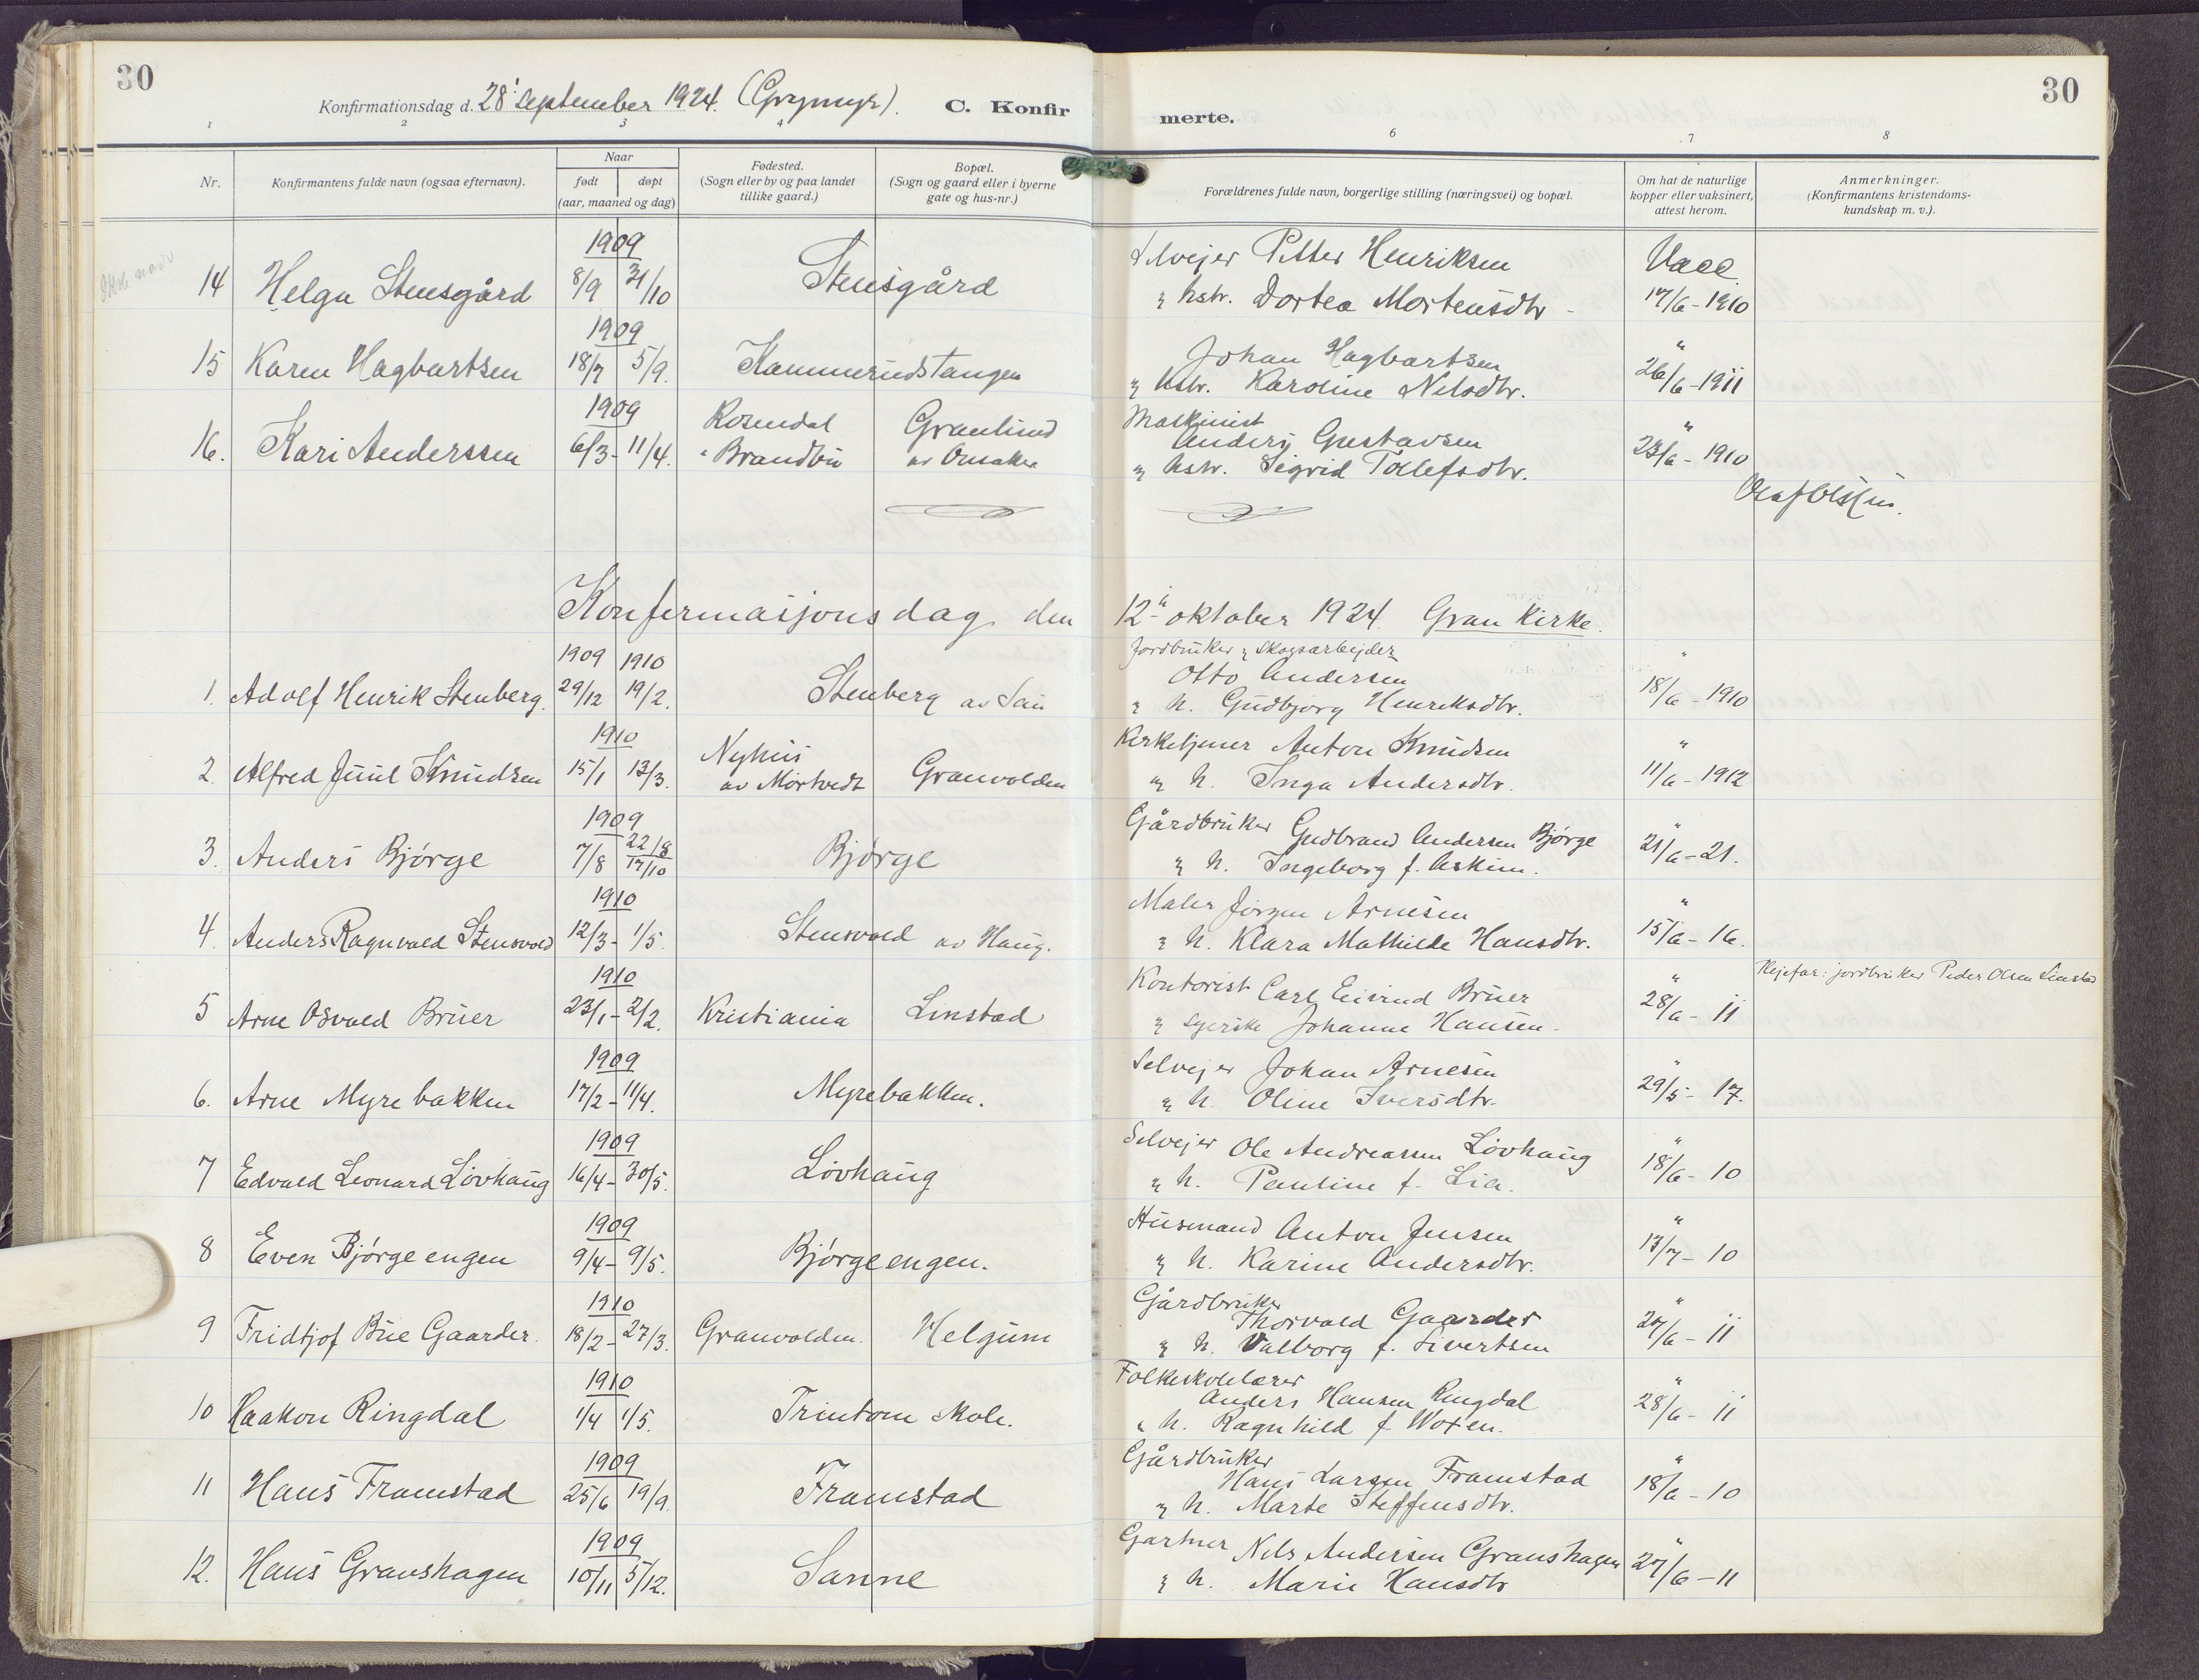 30
30
Konfirmationsdag d. 28' september 1924. (Grymyr).
C. Konfir
merte.
1 2 3 4 6 7 8
Nr.
Konfirmantens fulde navn (ogsaa efternavn).
Naar
født døpt
(aar, maaned og dag)
Fødested.
(Sogn eller by og paa landet
tillike gaard.)
Bopæl.
(Sogn og gaard eller i byerne
gate og hus-nr.)
Forældrenes fulde navn, borgerlige stilling (næringsvei) og bopæl.
Om hat de naturlige
kopper eller vaksinert,
attest herom.
Anmerkninger.
(Konfirmantens kristendoms-
kundskap m. v.).
1909
Selvejer Petter Henriksen Vacc
14 Helga Stensgård 8/9 31/10 Stensgård
& hstr. Dortea Mortensdtr - 17/6 - 1910
1909
Johan Hagbartsen "
15 Karen Hagbartsen 18/7 5/9. Kammerudstangen
& hstr. Karoline Nelsdtr. 26/6 - 1911
1909
Rosendal Granlund
Maskinist
Anders Gustavsen "
16. Kari Anderssen 6/3 - 11/4. Brandbu av Onsaker
& hstr. Sigrid Tollefsdtr. 23/6 - 1910
Konfirmasjonsdag den 12te oktober 1924. Gran Kirke.
1909 1910
Jordbruker & skogsarbejder
Otto Andersen "
1. Adolf Henrik Stenberg. 29/12 19/2. Stenberg av
& h. Gudbjørg Henriksdtr. 18/6 - 1910
1910
Nyhus
Kirketjener Anton Knudsen "
2. Alfred Juul Knudsen 15/1 13/3. av Mortvedt Granvolden
& h. Inga Andersdtr. 11/6 - 1912
1909
Gårdbruker Gudbrand Andersen Bjørge "
3. Anders Bjørge 7/8 22/8 17/10 Bjørge
& h. Ingeborg f. Askim. 21/6 - 21.
1910
Maler Jørgen Arnesen "
4. Anders Ragnvald Stensvold 12/3 - 1/5. Stensvold av Haug.
& h. Klara Mathilde Hansdtr. 15/6 - 16.
1910
Kontorist Carl Eivind Bruer "
Plejefar: jordbruker Peder Olsen Linstad
5 Arne Osvald Bruer 23/1 - 2/2. Kristiania Linstad
& syerske Johanne Hansen. 28/6 - 11
1909
Selvejer Johan Arnesen "
6. Arne Myrebakken 17/2 - 11/4. Myrebakken.
& h. Oline Iversdtr. 29/5 - 17.
1909
Selvejer Ole Andreassen Lövhaug "
7 Edvald Leonard Lövhaug 16/4 - 30/5. Lövhaug
& h. Pauline f. Lia. 18/6 - 10
1909
Husmand Anton Jensen "
8 Even Bjørgeengen 9/4 - 9/5. Bjørgeengen.
& h. Karine Andersdtr. 13/7 - 10
1910
Gårdbruker
Thorvald Gaarder "
9 Fridtjof Bue Gaarder. 18/2 - 27/3. Granvolden. Helgum
& h. Valborg f. Sivertsen 27/6 - 11
1910
Folkeskolelærer
Anders Hansen Ringdal "
10 Haakon Ringdal 1/4 1/5. Trintom skole.
& h. Ragnhild f. Woxen. 28/6 - 11
1909
Gårdbruker
Hans Larsen Framstad "
11 Hans Framstad 25/6 19/9. Framstad
& h. Marte Steffensdtr. 18/6 - 10
1909
Gartner Nels Andersen Granshagen "
12. Hans Granshagen 10/11 5/12. Sanne
& h. Marie Hansdtr 27/6 - 11